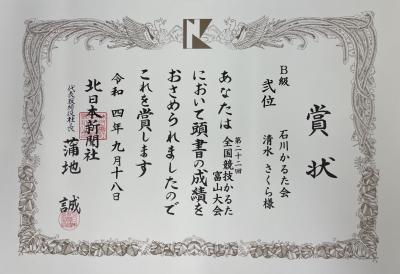 賞状
B級
弐位
石川かるた会
清水 さくら様
あなたは
第二十二回
全国競技かるた
富山大会
において頭書の成績を
おさめられましたので
これを賞します
令和四年九月十八日
北日本新聞社
代表取締役社長 蒲地 誠